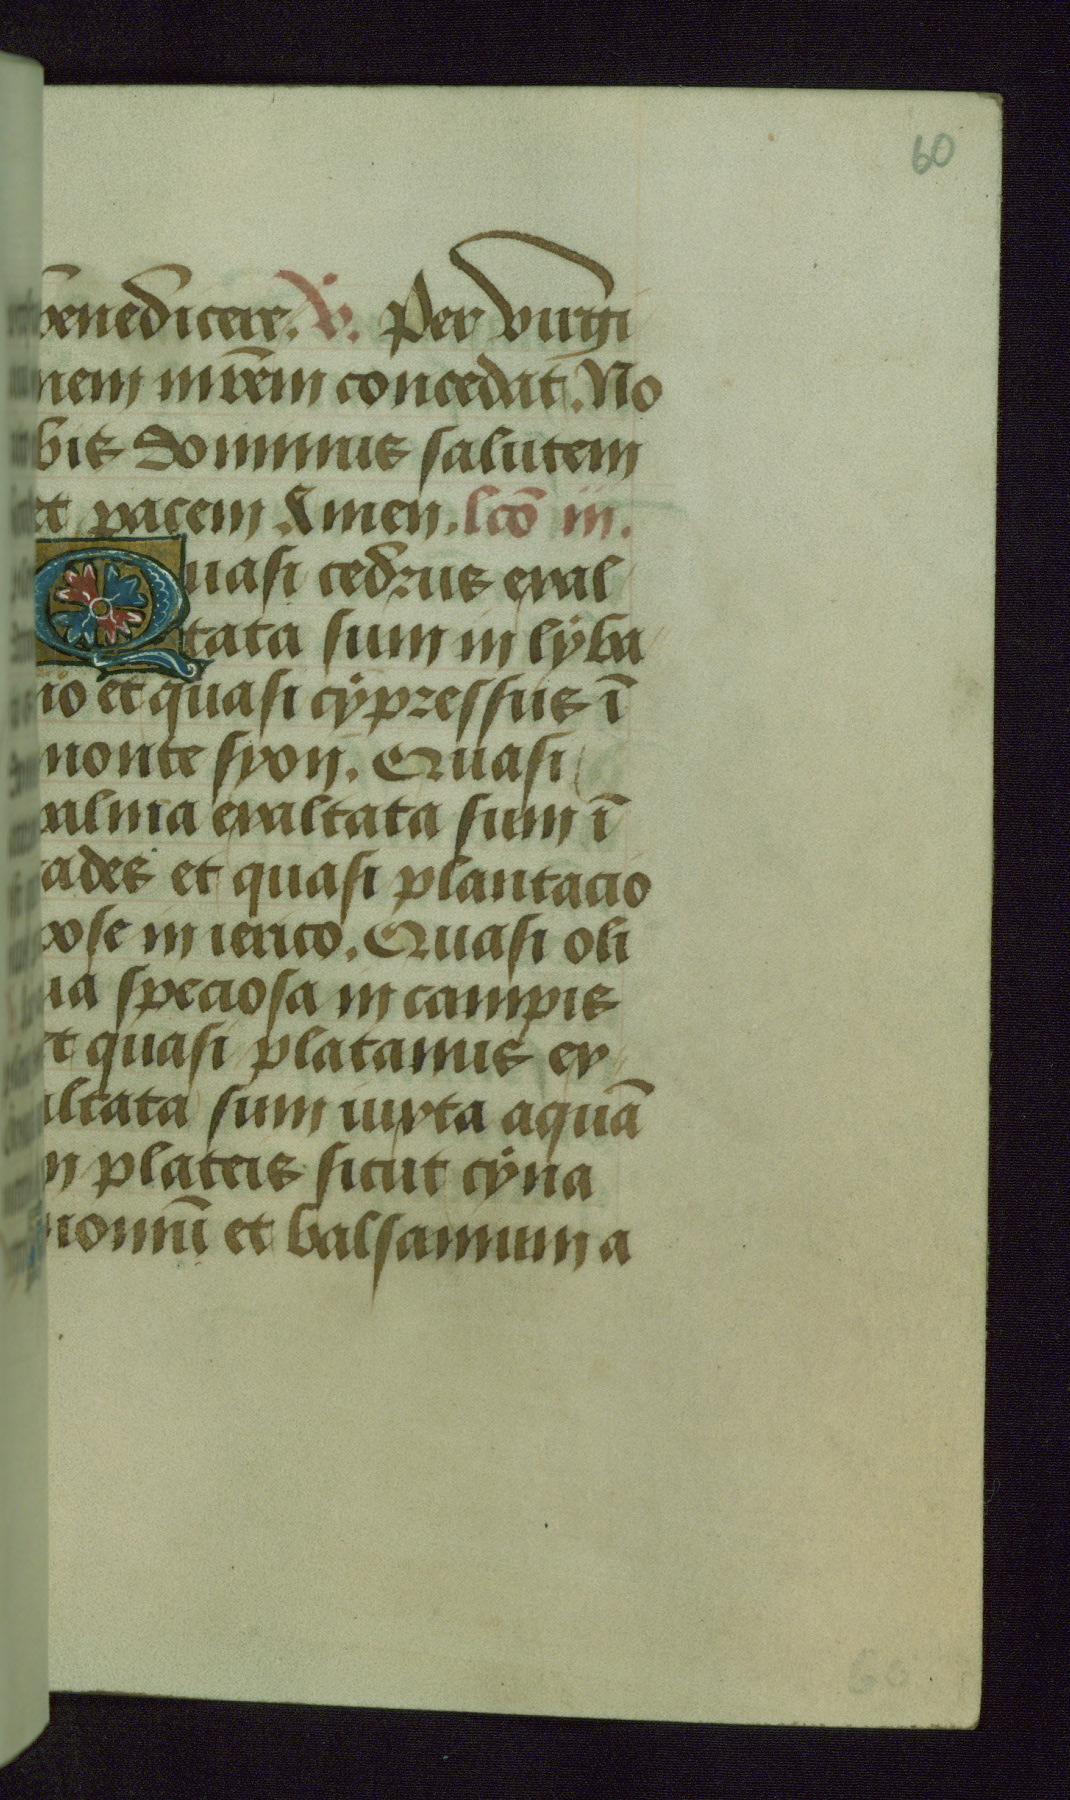 60
benedicere. V. Per virgi
nem mr̄em concedat. No
bis dominus salutem
et pacem Amen. lcō iii.
Quasi cedrus exal
tata sum in lÿba
no et quasi cÿpressus ī
monte syon. Quasi
palma exaltata sum ī
cades et quasi plantacio
rose in ierico. Quasi oli
ua speciosa in campis
et quasi platanus ex
altata sum iuxta aquā
in plateis sicut cÿna
momū et balsamum a
60